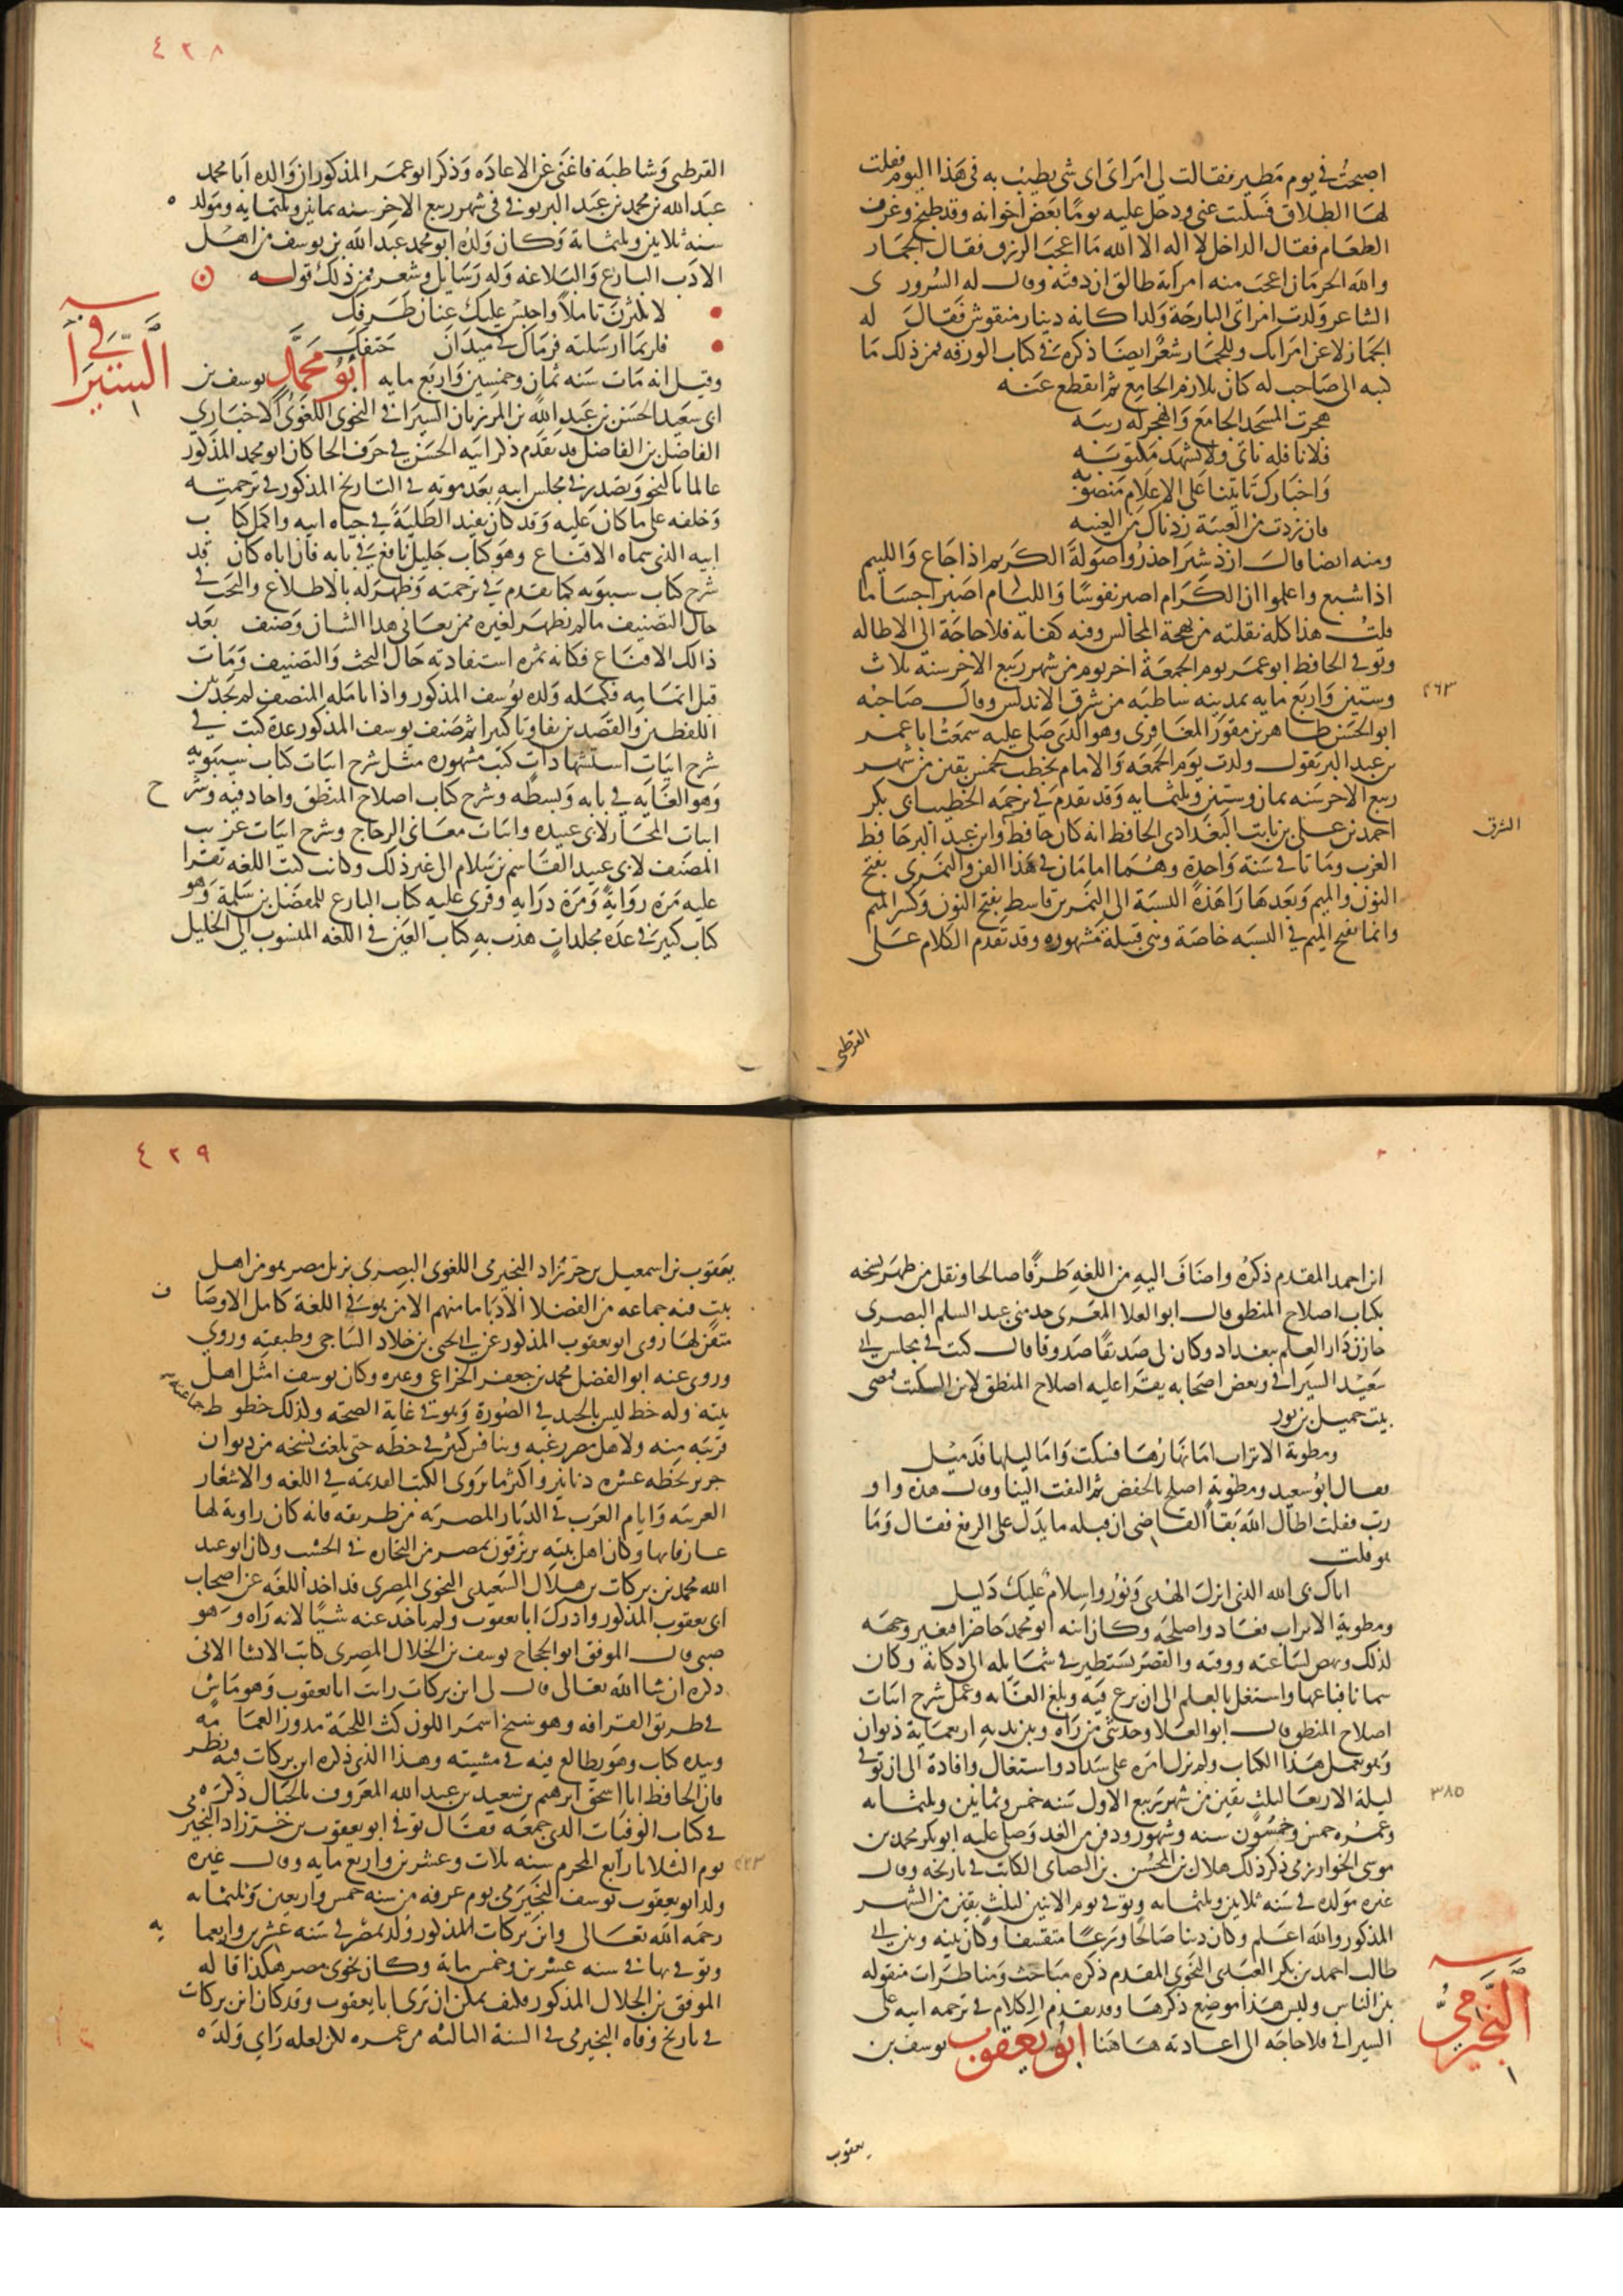 اصبحت في يوم مطير فقالت لي امراتي اي شي يطيب به في هذا اليوم فقلت
لها الطلاق فسكتت عني ودخل عليه يوما بعض اخوانه وقد طبخ وغرف
الطعام فقال الداخل لا اله الا الله ما اعجب الرزق فقال الجماز
والله الحرمان اعجب منه امراته طالق ان ذقته وقال له السرور ي
الشاعر ولدت امراتي البارحة ولدا كانه دينار منقوش فقال له
الجماز لاعن امراتك وللجماز شعر ايضا ذكره في كتاب الورقه فمن ذلك ما
كتبه الى صاحب له كان يلازم الجامع ثم انقطع عنه
هجرت المسجد الجامع والهجر له ريبه
فلا نافله تاتي ولا تشهد مكتوبه
واخبارك تاتينا على الاعلام منصوبه
فان زدت من الغيبة زدناك من الغيبه
ومنه ايضا قال ازدشير احذروا صولة الكريم اذا جاع واللييم
اذا شبع واعلموا ان الكرام اصبر نفوسا والليام اصبر اجساما
قلت هذا كله نقلته من بهجة المجالس وفيه كفاية فلا حاجة الى الاطاله
وتوفي الحافظ ابو عمر يوم الجمعة اخر يوم من شهر ربيع الاخر سنة ثلاث
وستين واربع مايه بمدينه شاطبه من شرق الاندلس وقال صاحبه
٤٦٣
ابو الحسن طاهر بن مفوز المعافري وهو الذي صلى عليه سمعت ابا عمر
بن عبد البر يقول ولدت يوم الجمعه والامام يخطب لخمس بقين من شهر
ربيع الاخر سنه ثمان وستين وثلثمايه وقد تقدم في ترجمه الخطيب ابي بكر
احمد بن علي بن ثابت البغدادي الحافظ انه كان حافظ وابن عبد البر حافظ
الشرق
الغرب وماتا في سنة واحدة وهما امامان في هذا الفن والنمري بفتح
النون والميم وبعدها را هذه النسبة الى النمر بن قاسط بفتح النون وكسر الميم
وانما تفتح الميم في النسبه خاصة وهي قبيلة مشهوره وقد تقدم الكلام على
القرطبي
٤٢٨
القرطبي وشاطبه فاغنى عن الاعاده وذكر ابو عمر المذكور ان والده ابا محمد
عبد الله بن محمد بن عبد البر توفي في شهر ربيع الاخر سنه ثمانين وثلثمايه ومولده
سنه ثلاثين وثلثماية وكان ولده ابو محمد عبد الله بن يوسف من اهل
الادب البارع والبلاغه وله رسايل وشعر فمن ذلك قوله
لا تكثرن تاملا واحبس عليك عنان طرفك
فلربما ارسلته فرماك في ميدان حتفك
وقيل انه مات سنه ثمان وخمسين واربع مايه ابو محمد يوسف بن
السيرافي
ابي سعيد الحسن بن عبد الله بن المرزبان السيرافي النحوي اللغوي الاخباري
الفاضل بن الفاضل قد تقدم ذكر ابيه الحسن في حرف الحا كان ابو محمد المذكور
عالما بالنحو وتصدر في مجلس ابيه بعد موته في التاريخ المذكور في ترجمته
وخلفه على ما كان عليه وقد كان يفيد الطلبة في حياه ابيه واكمل كتاب
ابيه الذي سماه الاقناع وهو كتاب جليل نافع في بابه فان اباه كان قد
شرح كتاب سيبويه كما تقدم في ترجمته وظهر له بالاطلاع والبحث في
حال التصنيف ما لم يظهر لغيره ممن يعاني هذا الشان وصنف بعد
ذلك الاقناع فكانه ثمره استفادته حال البحث والتصنيف ومات
قبل اتمامه فكمله ولده يوسف المذكور واذا تامله المنصف لم يجد بين
اللفظين والقصدين تفاوتا كبيرا ثم صنف يوسف المذكور عدة كتب في
شرح ابيات استشهادات كتب مشهوره مثل شرح ابيات كتاب سيبويه
وهو الغايه في بابه وبسطه وشرح كتاب اصلاح المنطق واجاد فيه وشرح
ابيات المجاز لابي عبيده وابيات معاني الزجاج وشرح ابيات غريب
المصنف لابي عبيد القاسم بن سلام الى غير ذلك وكانت كتب اللغه تقرا
عليه مرة رواية ومرة دراية وقري عليه كتاب البارع للمفضل بن سلمة وهو
كتاب كبير في عدة مجلدات هذب به كتاب العين في اللغه المنسوب الى الخليل
ابن احمد المقدم ذكره واضاف اليه من اللغه طرفا صالحا ونقل من ظهر نسخه
بكتاب اصلاح المنطق قال ابو العلا المعري حدثني عبد السلم البصري
خازن دار العلم ببغداد وكان لي صديقا صدوقا قال كنت في مجلس ابي
سعيد السيرافي وبعض اصحابه يقرا عليه اصلاح المنطق لابن السكيت فمضى
بيت حميد بن ثور
ومطوية الاقراب اما نهارها فسبت واما ليلها فذميل
فقال ابو سعيد ومطوية اصلح بالخفض ثم التفت الينا وقال هذه واو
رب فقلت اطال الله بقا القاضي ان قبله ما يدل على الرفع فقال وما
هو فقلت
اتاك بي الله الذي انزل الهدى ونور واسلام عليك دليل
ومطوية الاقراب فعاد واصلحه وكان ابنه ابو محمد حاضرا فتغير وجهه
لذلك ونهض لساعته ووقته والغضب يستطير في شمايله الى دكانه وكان
سمانا فباعها واشتغل بالعلم الى ان برع فيه وبلغ الغايه وعمل شرح ابيات
اصلاح المنطق قال ابو العلا وحدثني من راه وبين يديه اربعماية ديوان
وهو يعمل هذا الكتاب ولم يزل امره على سداد واشتغال وافادة الى ان توفي
ليلة الاربعا لثلث بقين من شهر ربيع الاول سنه خمس وثمانين وثلثمايه
٣٨٥
وعمره خمس وخمسون سنه وشهور ودفن من الغد وصلى عليه ابو بكر محمد بن
موسى الخوارزمي ذكر ذلك هلال بن المحسن بن الصابي الكاتب في تاريخه وقال
غيره مولده في سنه ثلاثين وثلثمايه وتوفي يوم الاثنين لثلث بقين من الشهر
المذكور والله اعلم وكان دينا صالحا ورعا متقشفا وكان بينه وبين ابي
طالب احمد بن بكر العبدي النحوي المقدم ذكره مباحث ومناظرات منقوله
بين الناس وليس هذا موضع ذكرها وقد تقدم الكلام في ترجمه ابيه على
النجيرمي
السيرافي فلا حاجه الى اعادته هاهنا ابو يعقوب يوسف بن
يعقوب
٤٢٩
يعقوب بن اسمعيل بن خرزاد النجيرمي اللغوي البصري نزيل مصر هو من اهل
بيت فيه جماعه من الفضلا الادبا ما منهم الا من هو في اللغة كامل الاوصاف
متقن لها روى ابو يعقوب المذكور عن ابي يحيى بن خلاد الساجي وطبقته وروي
وروى عنه ابو الفضل محمد بن جعفر الخزاعي وغيره وكان يوسف امثل اهل
بيته وله خط ليس بالجيد في الصورة وهو في غاية الصحة ولذلك خطوط جماعته
قريبه منه ولاهل مصر رغبه وتنافس كثير في خطه حتى بلغت نسخه من ديوان
جرير بخطه عشره دنانير واكثر ما يروى الكتب القديمة في اللغه والاشعار
العربيه وايام العرب في الديار المصريه من طريقه فانه كان راوية لها
عارفا بها وكان اهل بيته يرتزقون بمصر من التجاره في الخشب وكان ابو عبد
الله محمد بن بركات بن هلال السعيدي النحوي المصري قد اخذ اللغه عن اصحاب
ابي يعقوب المذكور وادرك ابا يعقوب ولم ياخذ عنه شيا لانه راه وهو
صبي قال الموفق ابو الحجاج يوسف بن الخلال المصري كاتب الانشا الاتي
ذكره ان شا الله تعالى قال لي ابن بركات رايت ابا يعقوب وهو ماش
في طريق القرافه وهو شيخ اسمر اللون كث اللحية مدور العمامه
وبيده كتاب وهو يطالع فيه في مشيته وهذا الذي ذكره ابن بركات فيه نظر
فان الحافظ ابا اسحق ابرهيم بن سعيد بن عبد الله المعروف بالحبال ذكره
في كتاب الوفيات الذي جمعه فقال توفي ابو يعقوب بن خرزاد النجيرمي
يوم الثلاثا رابع المحرم سنه ثلاث وعشرين واربع مايه وقال غيره
٤٢٣
ولد ابو يعقوب يوسف النجيرمي يوم عرفه من سنه خمس واربعين وثلثمايه
رحمه الله تعالى وابن بركات المذكور ولد بمصر في سنه عشرين واربعمايه
وتوفي بها في سنه عشرين وخمس ماية وكان نحوي مصر هكذا قاله
الموفق بن الخلال المذكور فكيف يمكن ان يرى ابا يعقوب وقد كان ابن بركات
في تاريخ وفاه النجيرمي في السنة الثالثه من عمره لكن لعله راى ولده